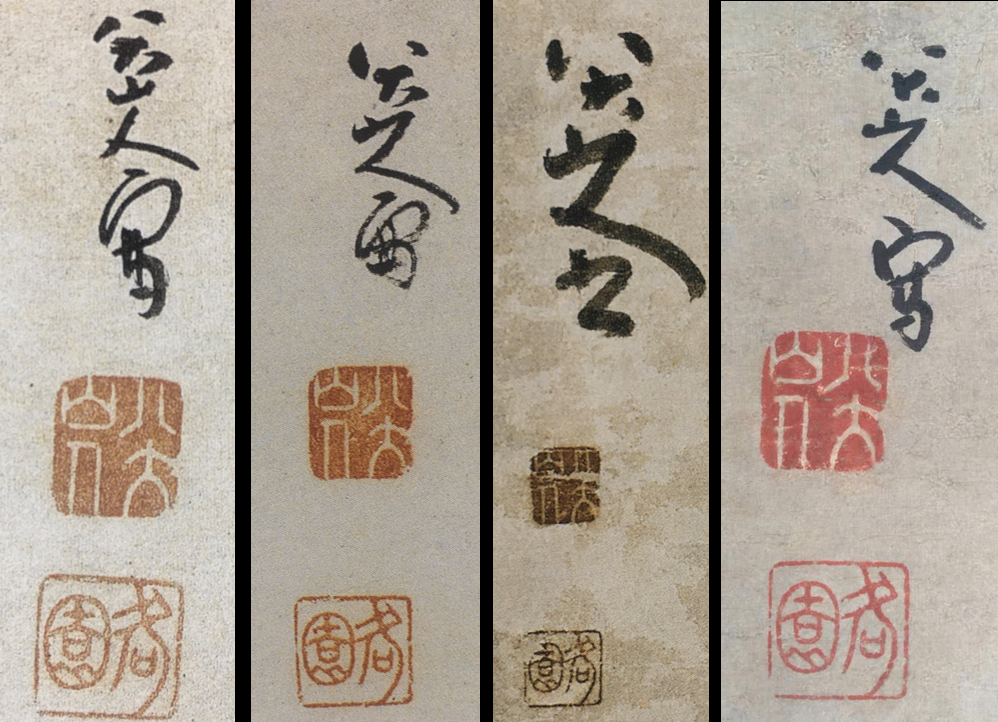 八大山人寫
八大山人
何園
八大山人寫
八大山人
何園
八大山人
八大山人
何園
八大山人寫
八大山人
何園